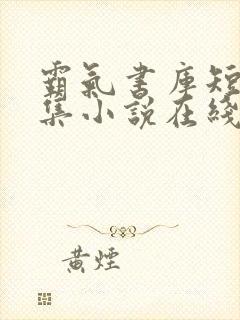 霸氣書庫短
集小說在綫
黃煙